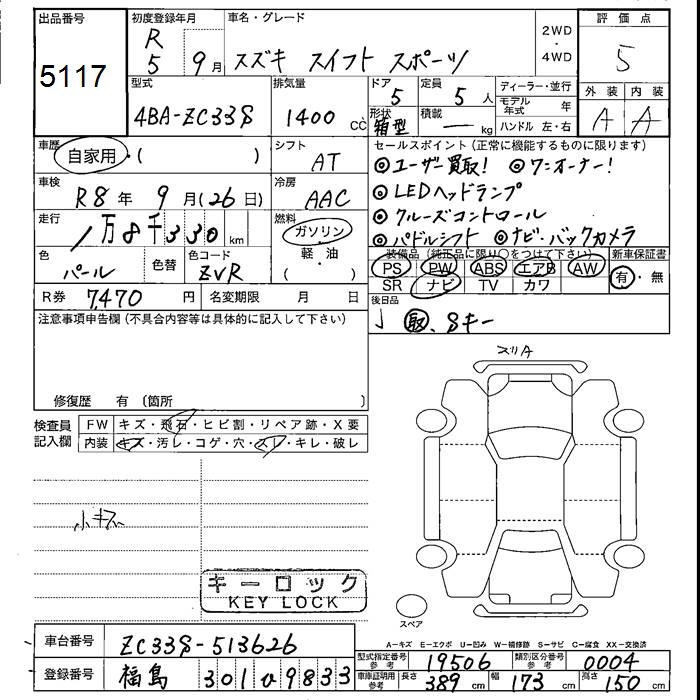 出品番号 初度登録年月 車名・グレード 2WD・4WD 評価点
5117 R5 9月 スズキ スイフト スポーツ 5
型式 排気量 ドア 定員 ディーラー・並行 外装 内装
4BA-ZC33S 1400 CC 5 5人 モデル年式 年 A A
形状 箱型 積載 — kg ハンドル 左・右
車歴 自家用・( ) シフト AT セールスポイント(正常に機能するものに限ります)
◎ユーザー買取! ◎ワンオーナー!
車検 R8年 9月(26日) 冷房 AAC ◎LEDヘッドランプ
走行 1万8千330km 燃料 ガソリン・軽・油( ) ◎クルーズコントロール
◎パドルシフト ◎ナビ・バックカメラ
色 パール 色替 色コード ZVR 装備品(純正品に限り○をつけて下さい) 新車保証書
PS PW ABS エアB AW 有・無
SR ナビ TV カワ
R券 7,470円 名変期限 月 日 後日品
取、Sキー
注意事項申告欄(不具合内容等は具体的に記入して下さい)
スリA
修復歴 有〔箇所 〕
検査員記入欄 FW キズ・飛石・ヒビ割・リペア跡・X要
内装 キズ・汚レ・コゲ・穴・スレ・キレ・破レ
小キズ
キーロック
KEY LOCK
スペア
A-キズ E-エクボ U-凹み W-補修跡 S-サビ C-腐食 XX-交換済
車台番号 ZC33S-513626 型式指定番号 参考 19506 類別区分番号 参考 0004
登録番号 福島 301 9833 車庫証明用 参考 長さ 389cm 幅 173cm 高さ 150cm